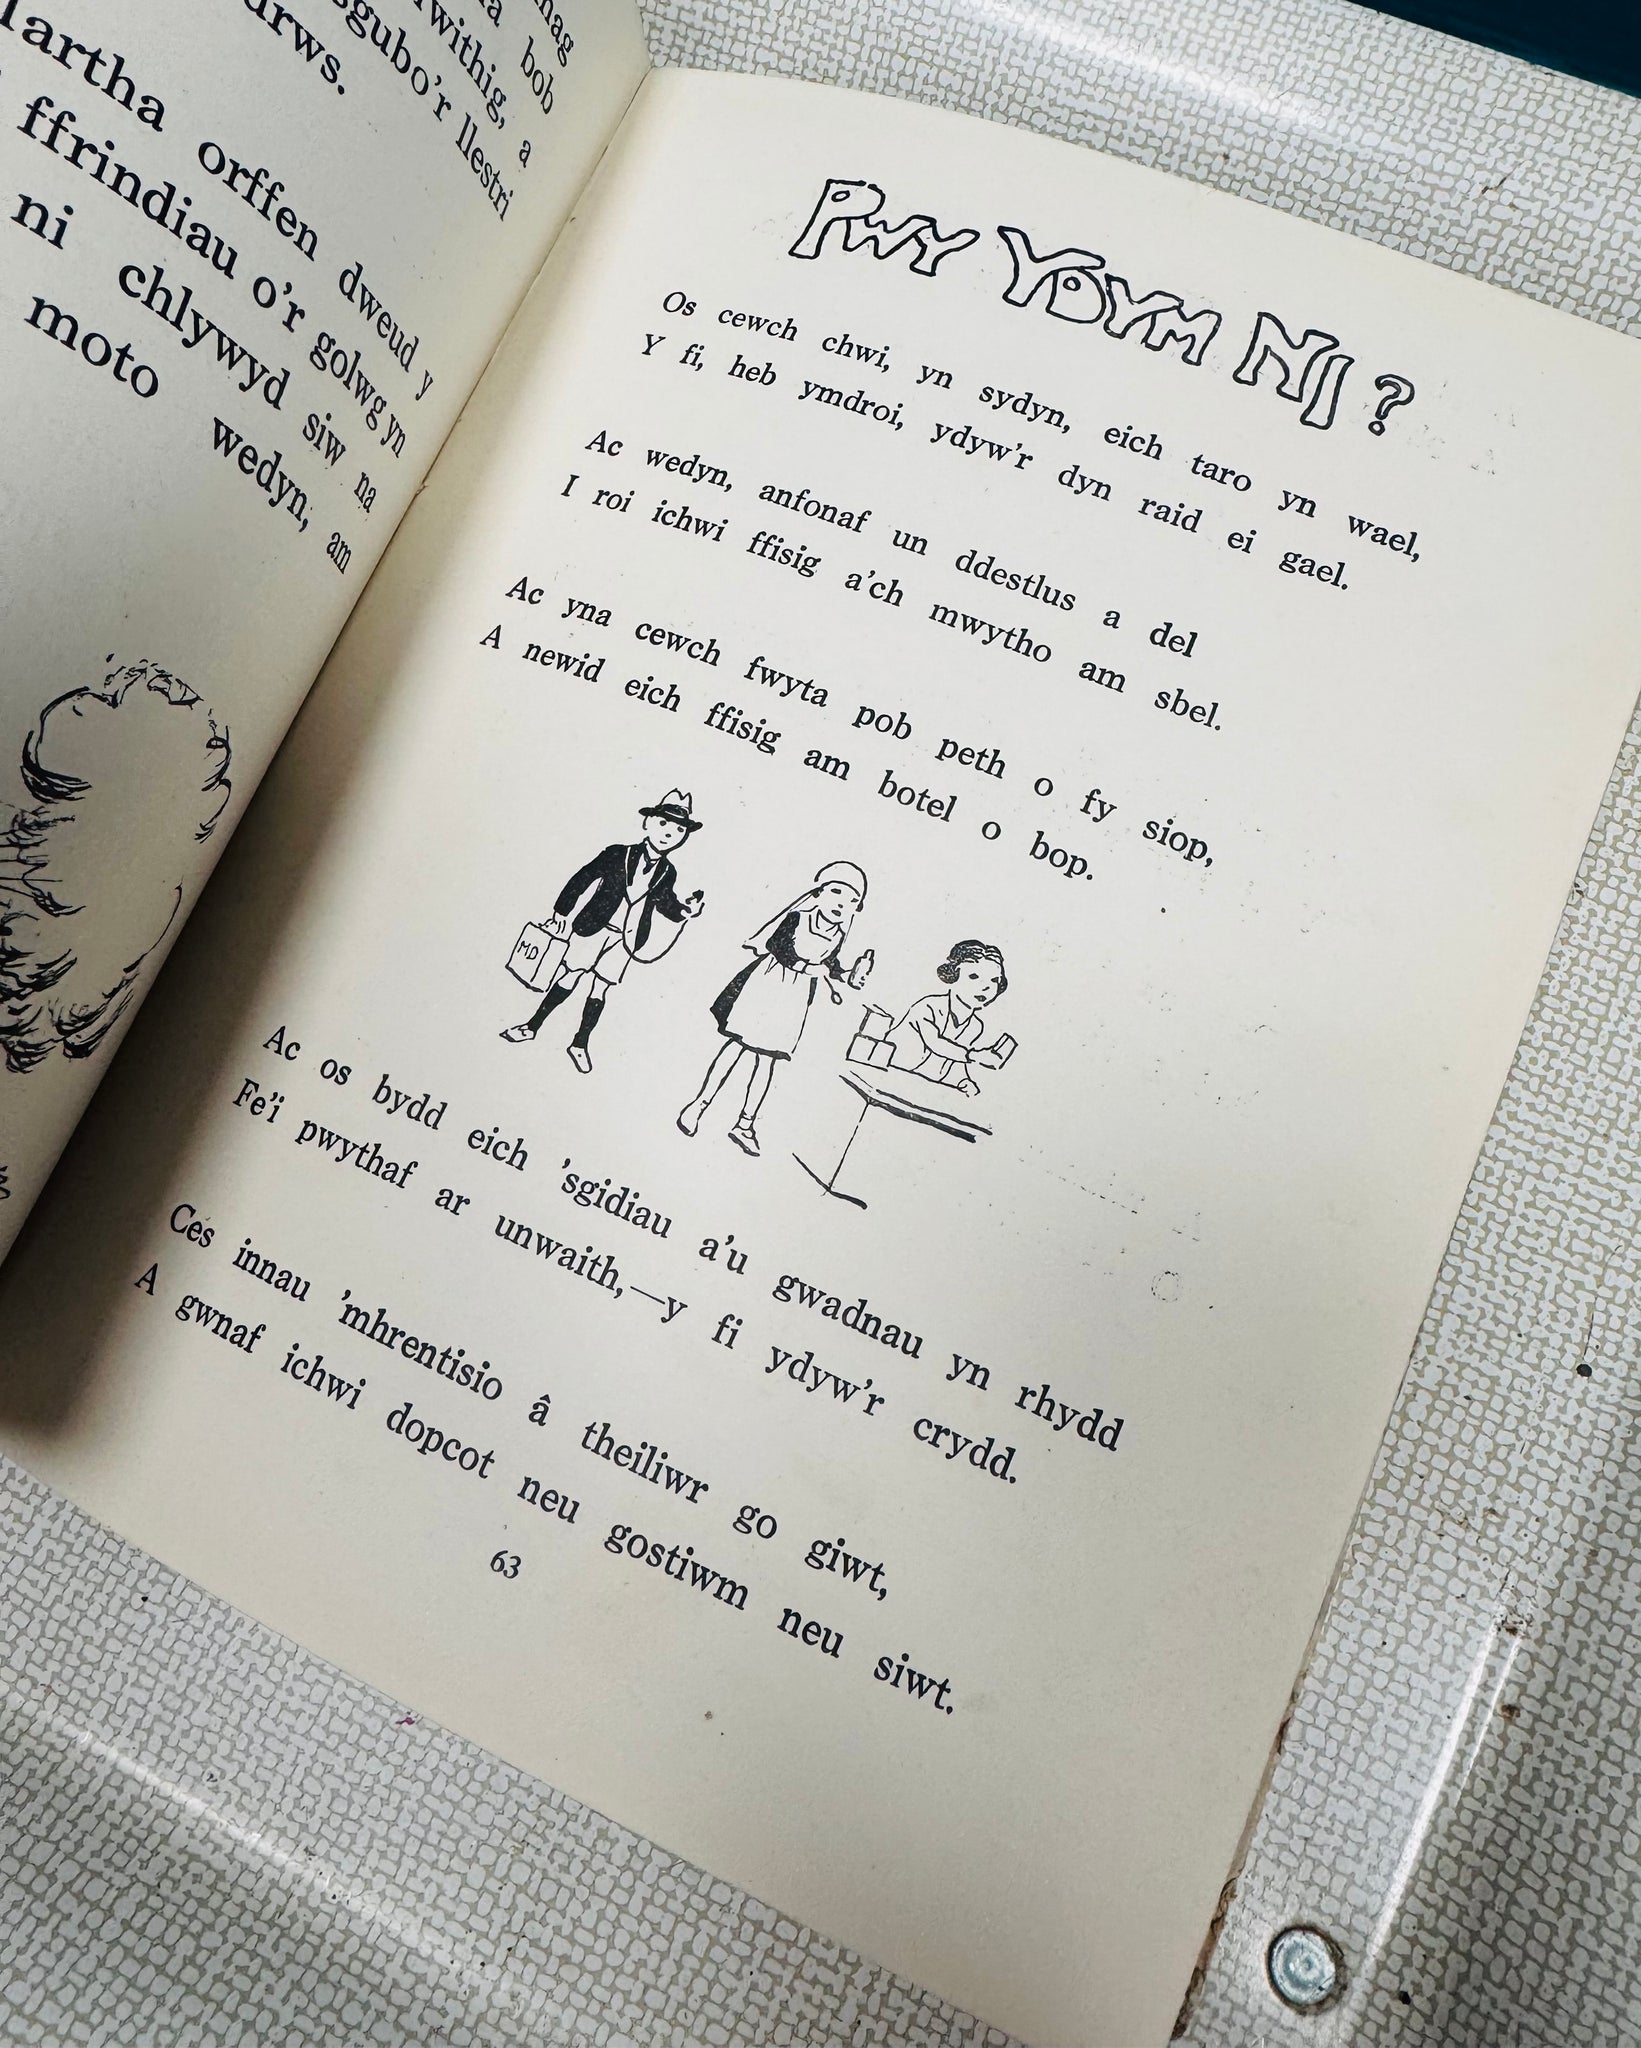 mag
bob
rwithig, a
sgubo'r llestri
urws.
artha orffen dweud y
ffrindiau o'r golwg yn
ni chlywyd siw na
moto wedyn, am
PWY YDYM NI?
Os cewch chwi, yn sydyn, eich taro yn wael,
Y fi, heb ymdroi, ydyw'r dyn raid ei gael.
Ac wedyn, anfonaf un ddestlus a del
I roi ichwi ffisig a'ch mwytho am sbel.
Ac yna cewch fwyta pob peth o fy siop,
A newid eich ffisig am botel o bop.
MD
Ac os bydd eich 'sgidiau a'u gwadnau yn rhydd
Fe'i pwythaf ar unwaith,—y fi ydyw'r crydd.
Ces innau 'mhrentisio â theiliwr go giwt,
A gwnaf ichwi dopcot neu gostiwm neu siwt.
63